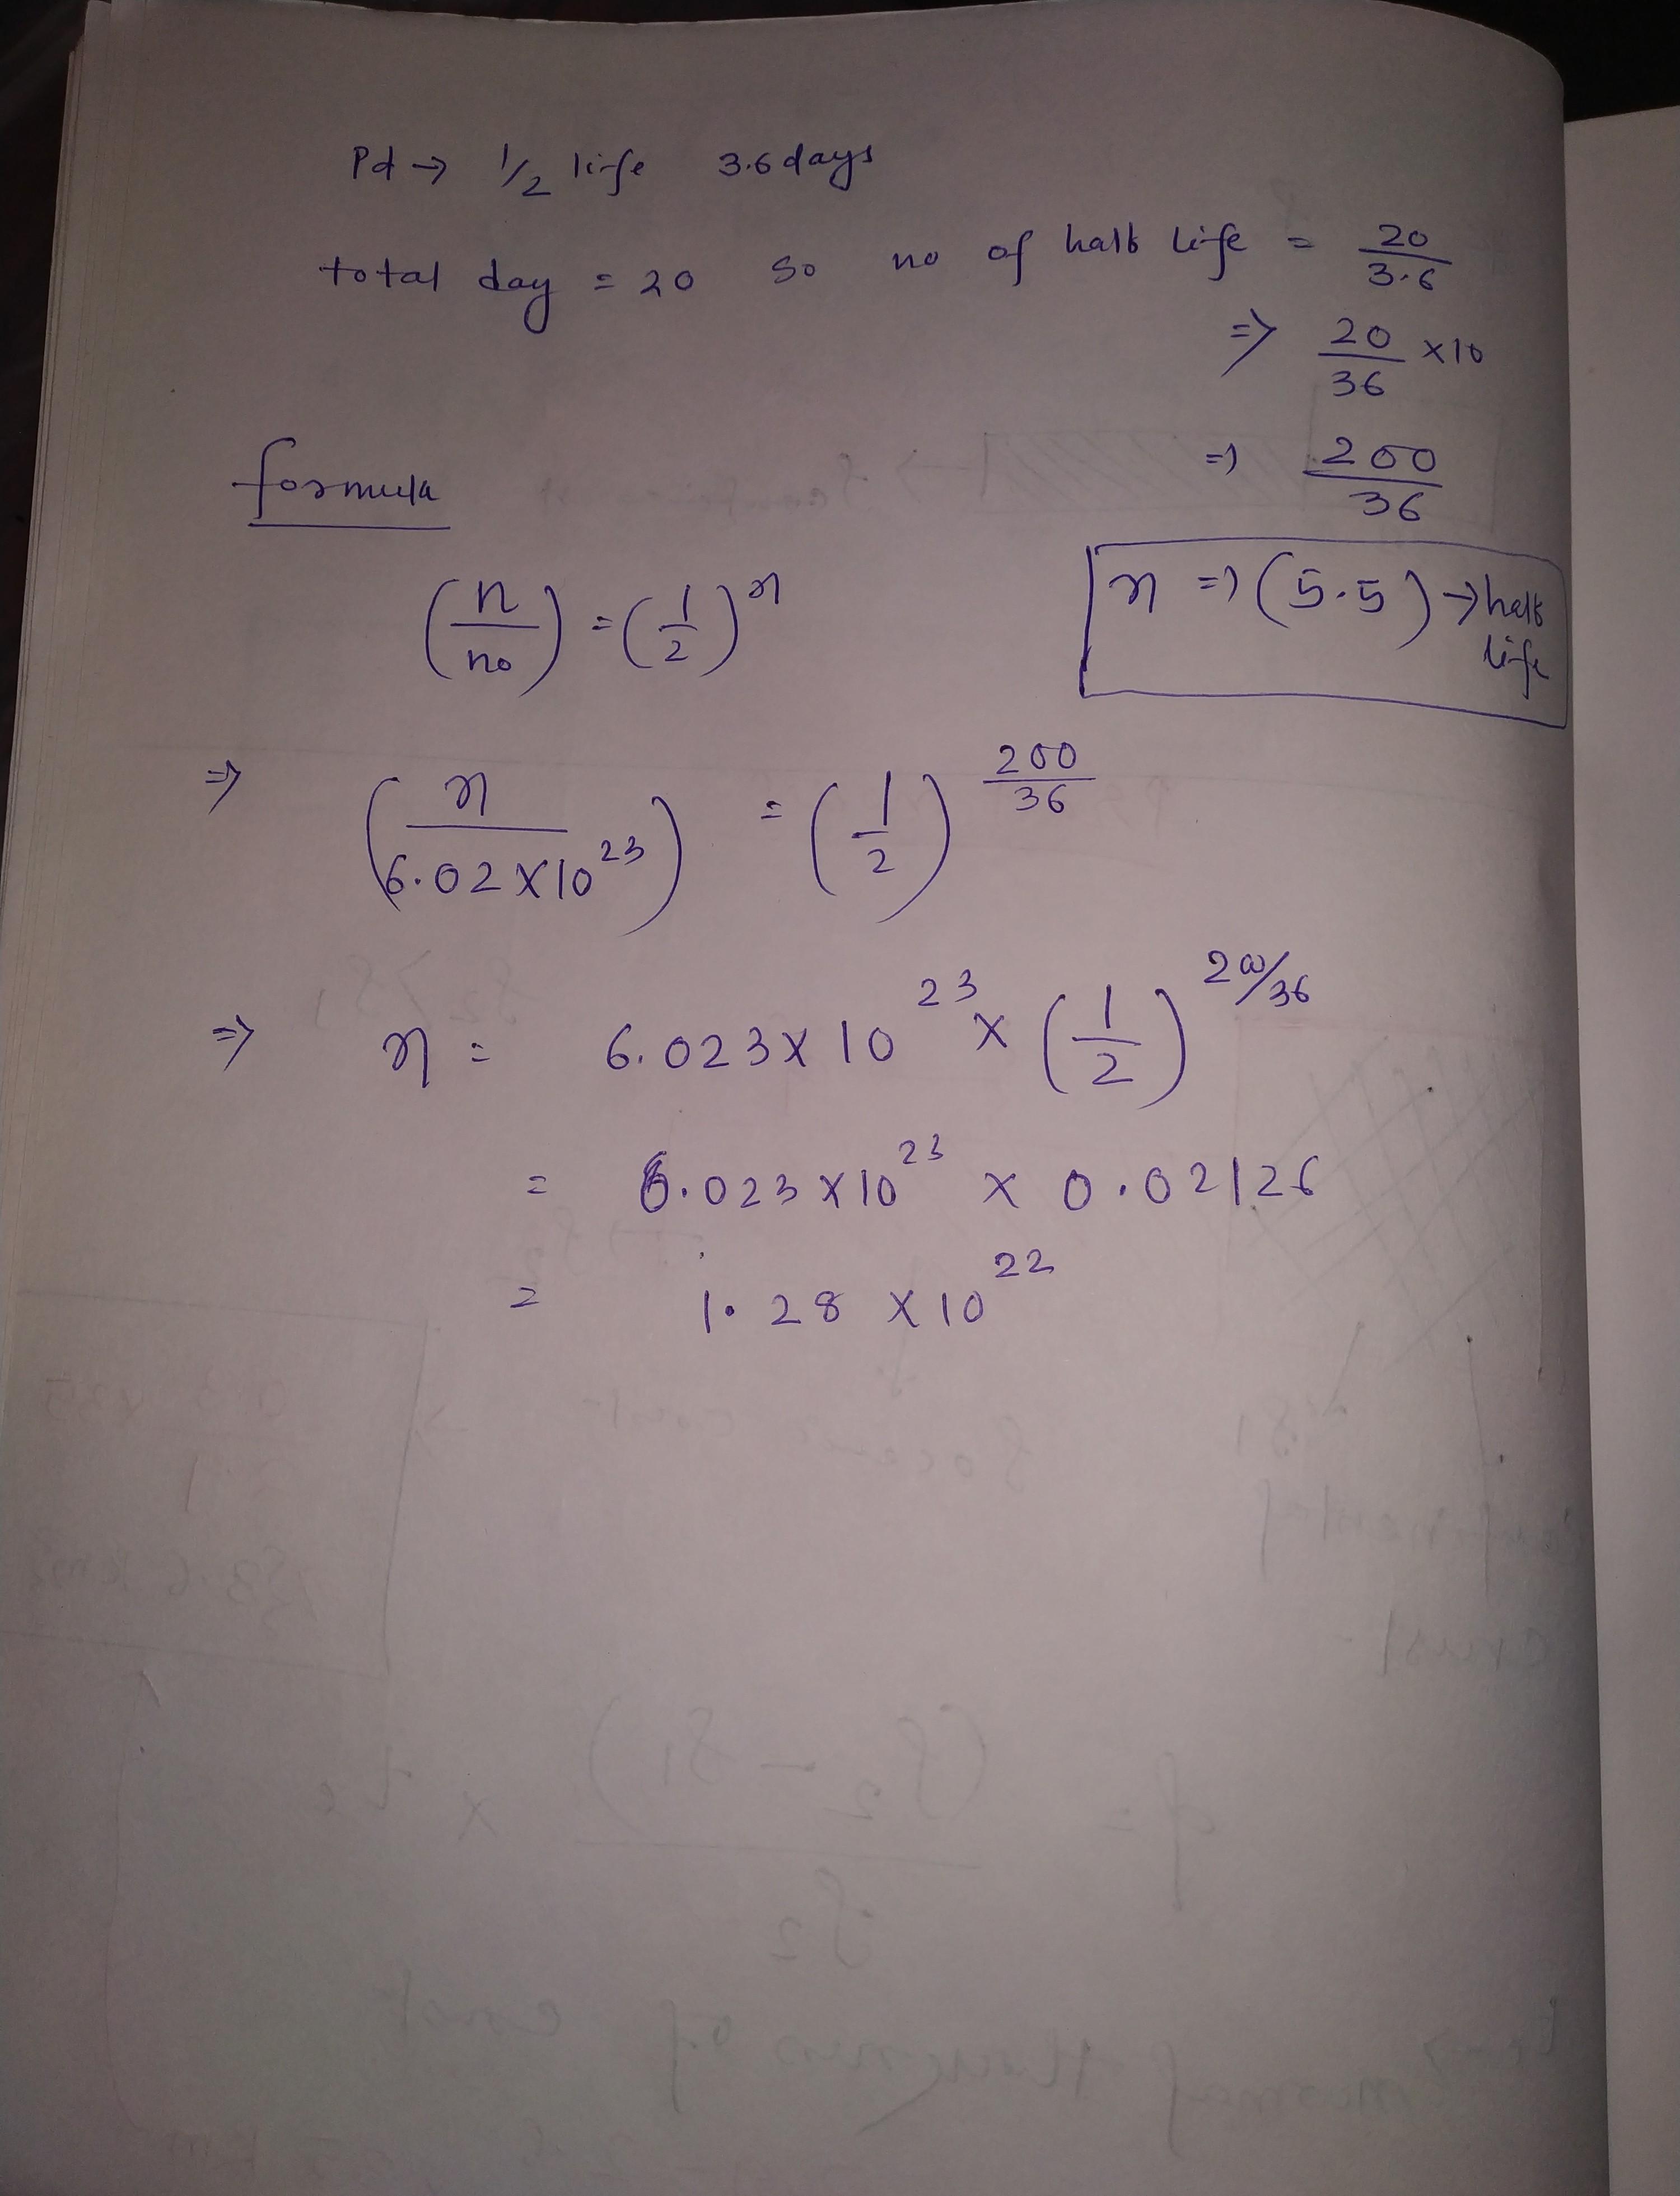 Pd → 1/2 life 3.6 days
total day = 20 so no of half life = 20/3.6
⇒ 20/36 ×10
⇒ 200/36
formula
n ⇒ (5.5) → half life
(n/no) = (1/2)^n
⇒ (n/6.02×10^23) = (1/2)^200/36
⇒ n = 6.023×10^23 × (1/2)^200/36
= 6.023×10^23 × 0.02126
= 1.28 ×10^22